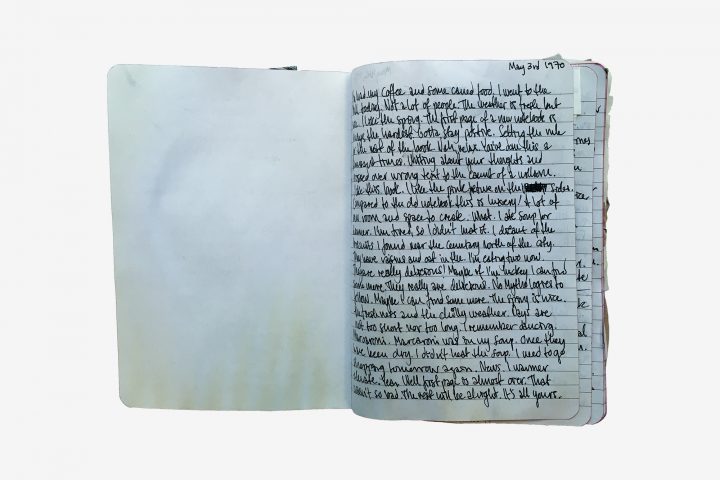 May 3rd 1970
had my coffee and some canned food. I went to the
today. Not a lot of people. The weather is fresh but
I like the spring. The first page of a new notebook is
the hardest. Gotta stay positive. Setting the rule
the rest of the book. Nah, relax. You've done this a
times. Writing about your thoughts and
over wrong text to the count of a million.
this book. I like the pink on the sides.
Compared to the old notebook this is luxury! A lot of
room and space to create. What. I ate soup for
dinner. I'm tired, so I didn't heat it. I dreamt of the
biscuits I found near the cemetery north of the city.
They have raisins and oat in the. I'm eating two now.
They are really delicious! Maybe if I'm lucky I can find
some more. They really are delicious. No Mythologies to
follow. Maybe I can find some more. The spring is nice.
freshness and the chilly weather. Days are
not too short nor too long. I remember dancing.
Macaroni. Macaroni was in my soup. Once they
have been dry. I didn't heat the soup. I need to go
shopping tomorrow again. News. I
Yea. Well first page is almost over. That
wasn't so bad. The rest will be alright. It's all yours.